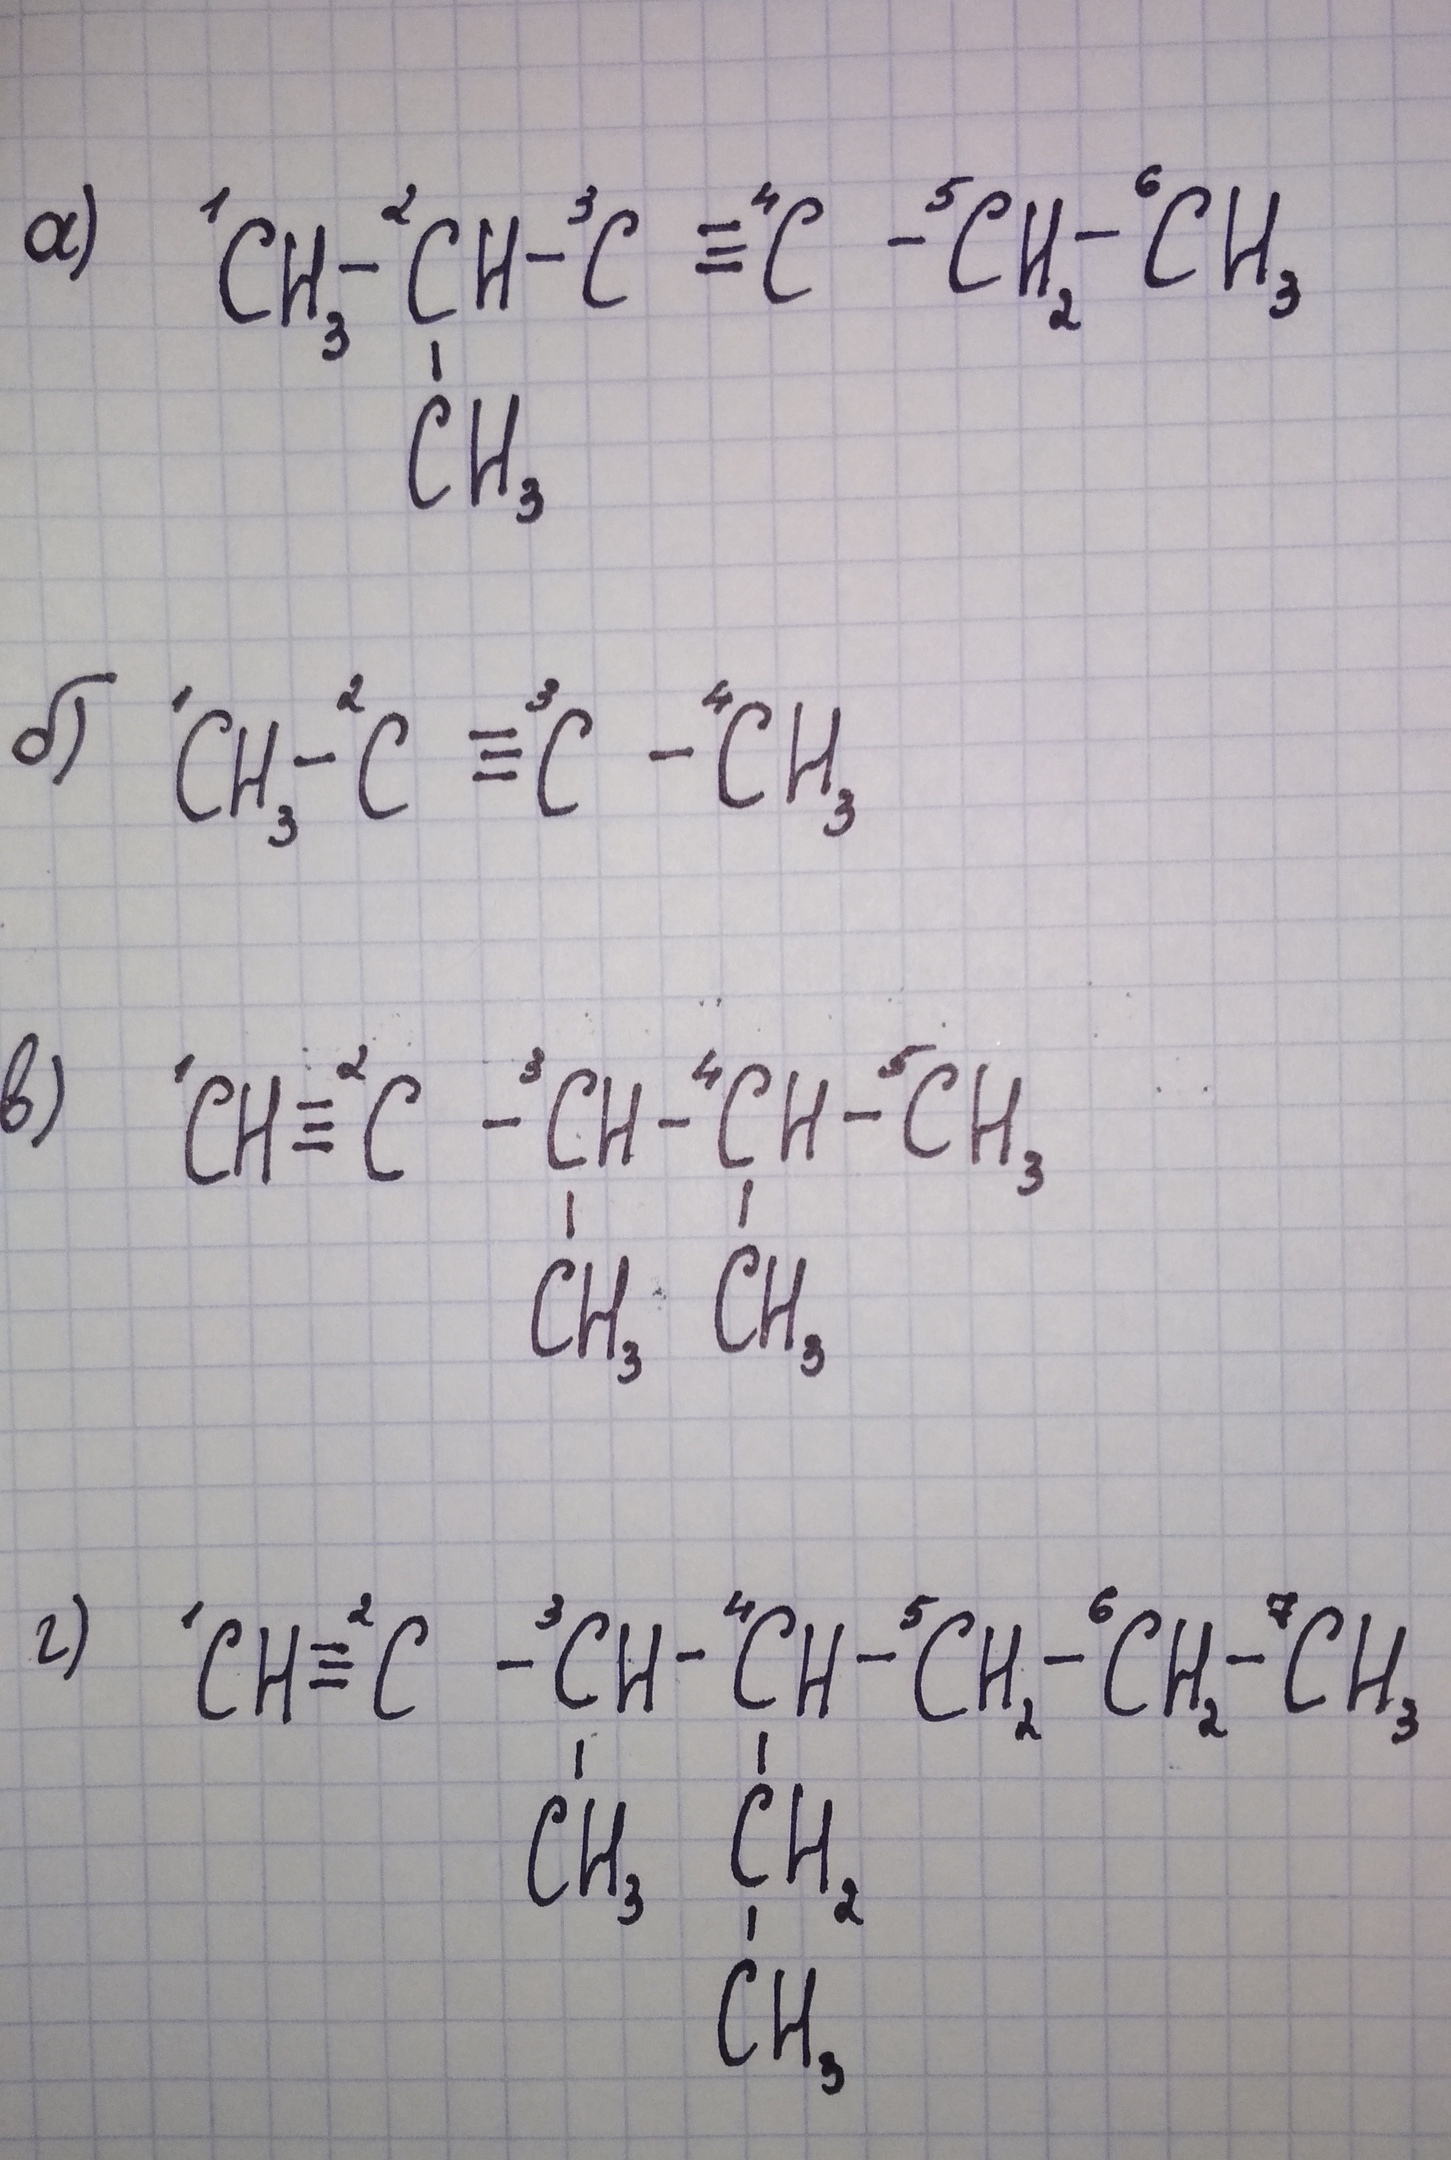 а) ¹CH₃-²CH-³C ≡⁴C -⁵CH₂-⁶CH₃
|
CH₃
б) ¹CH₃-²C ≡³C -⁴CH₃
в) ¹CH≡²C -³CH-⁴CH-⁵CH₃
| |
CH₃ CH₃
г) ¹CH≡²C -³CH-⁴CH-⁵CH₂-⁶CH₂-⁷CH₃
| |
CH₃ CH₂
|
CH₃